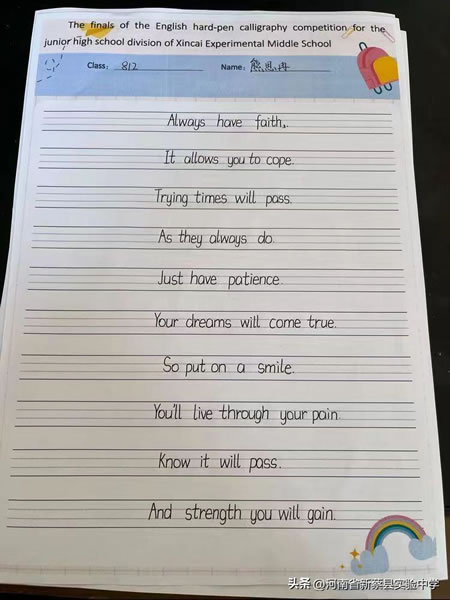 The finals of the English hard-pen calligraphy competition for the
junior high school division of Xincai Experimental Middle School
Class: 812 Name: 熊思冉
Always have faith.
It allows you to cope.
Trying times will pass.
As they always do.
Just have patience.
Your dreams will come true.
So put on a smile.
You'll live through your pain.
Know it will pass.
And strength you will gain.
头条 @河南省新蔡县实验中学